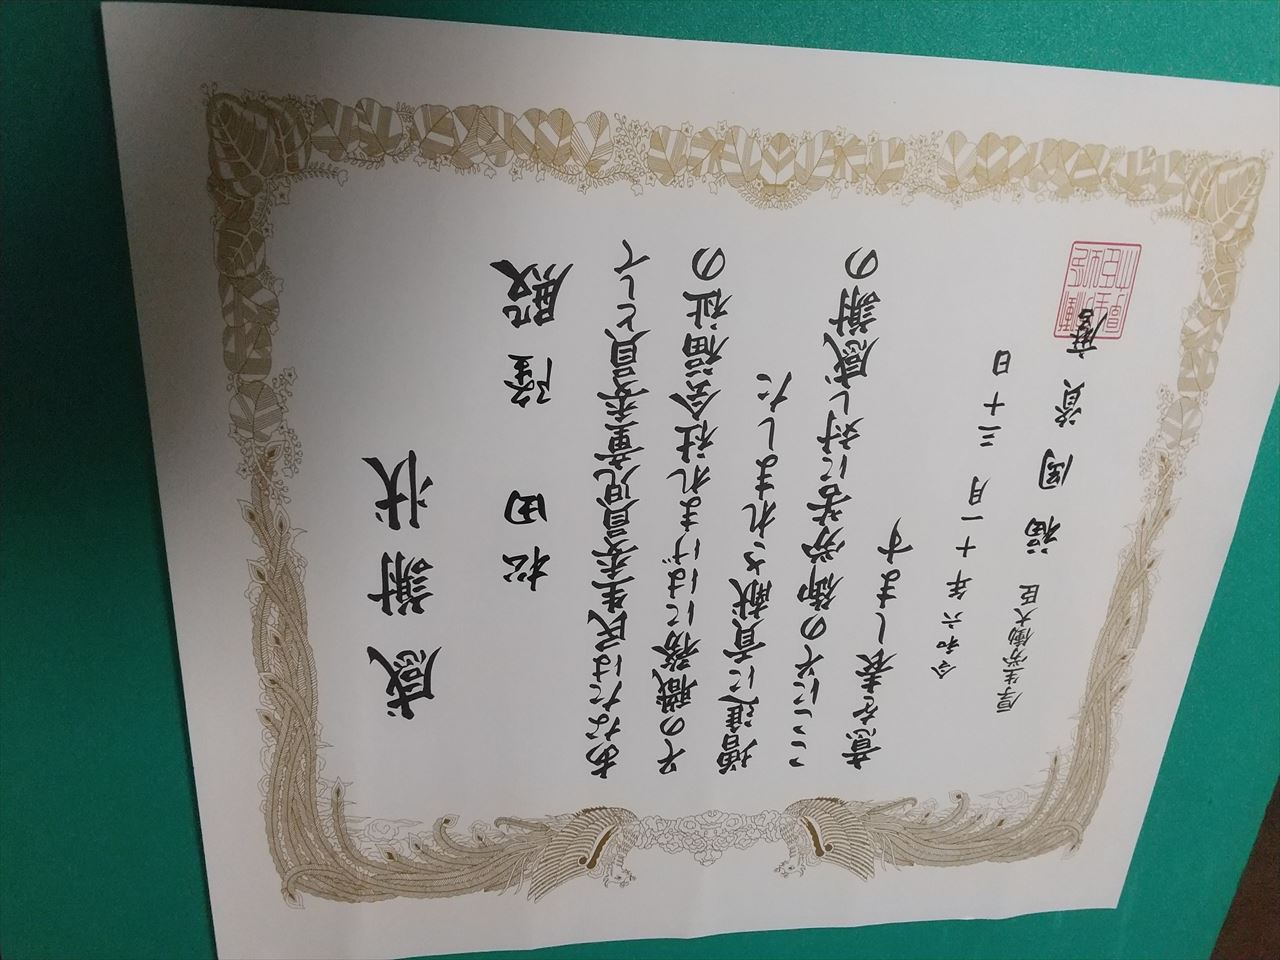 感謝状
松田 隆 殿
あなたは民生委員児童委員として
その職務にはげまれ社会福祉の
増進に貢献されました
ここにその御労苦に対し感謝の
意を表します
令和六年十一月三十日
厚生労働大臣 福岡資麿